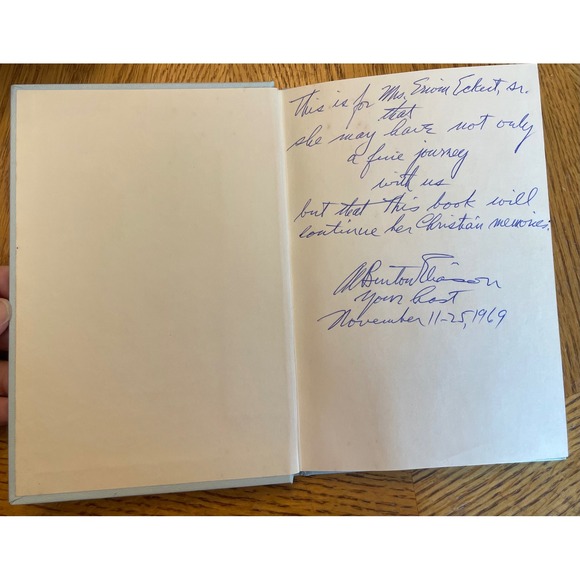 This is for Mrs. Erwin Eckert, Sr.
that
she may have not only
a fine journey
with us
but that this book will
continue her Christian memories.
Your Host
November 11-25, 1969